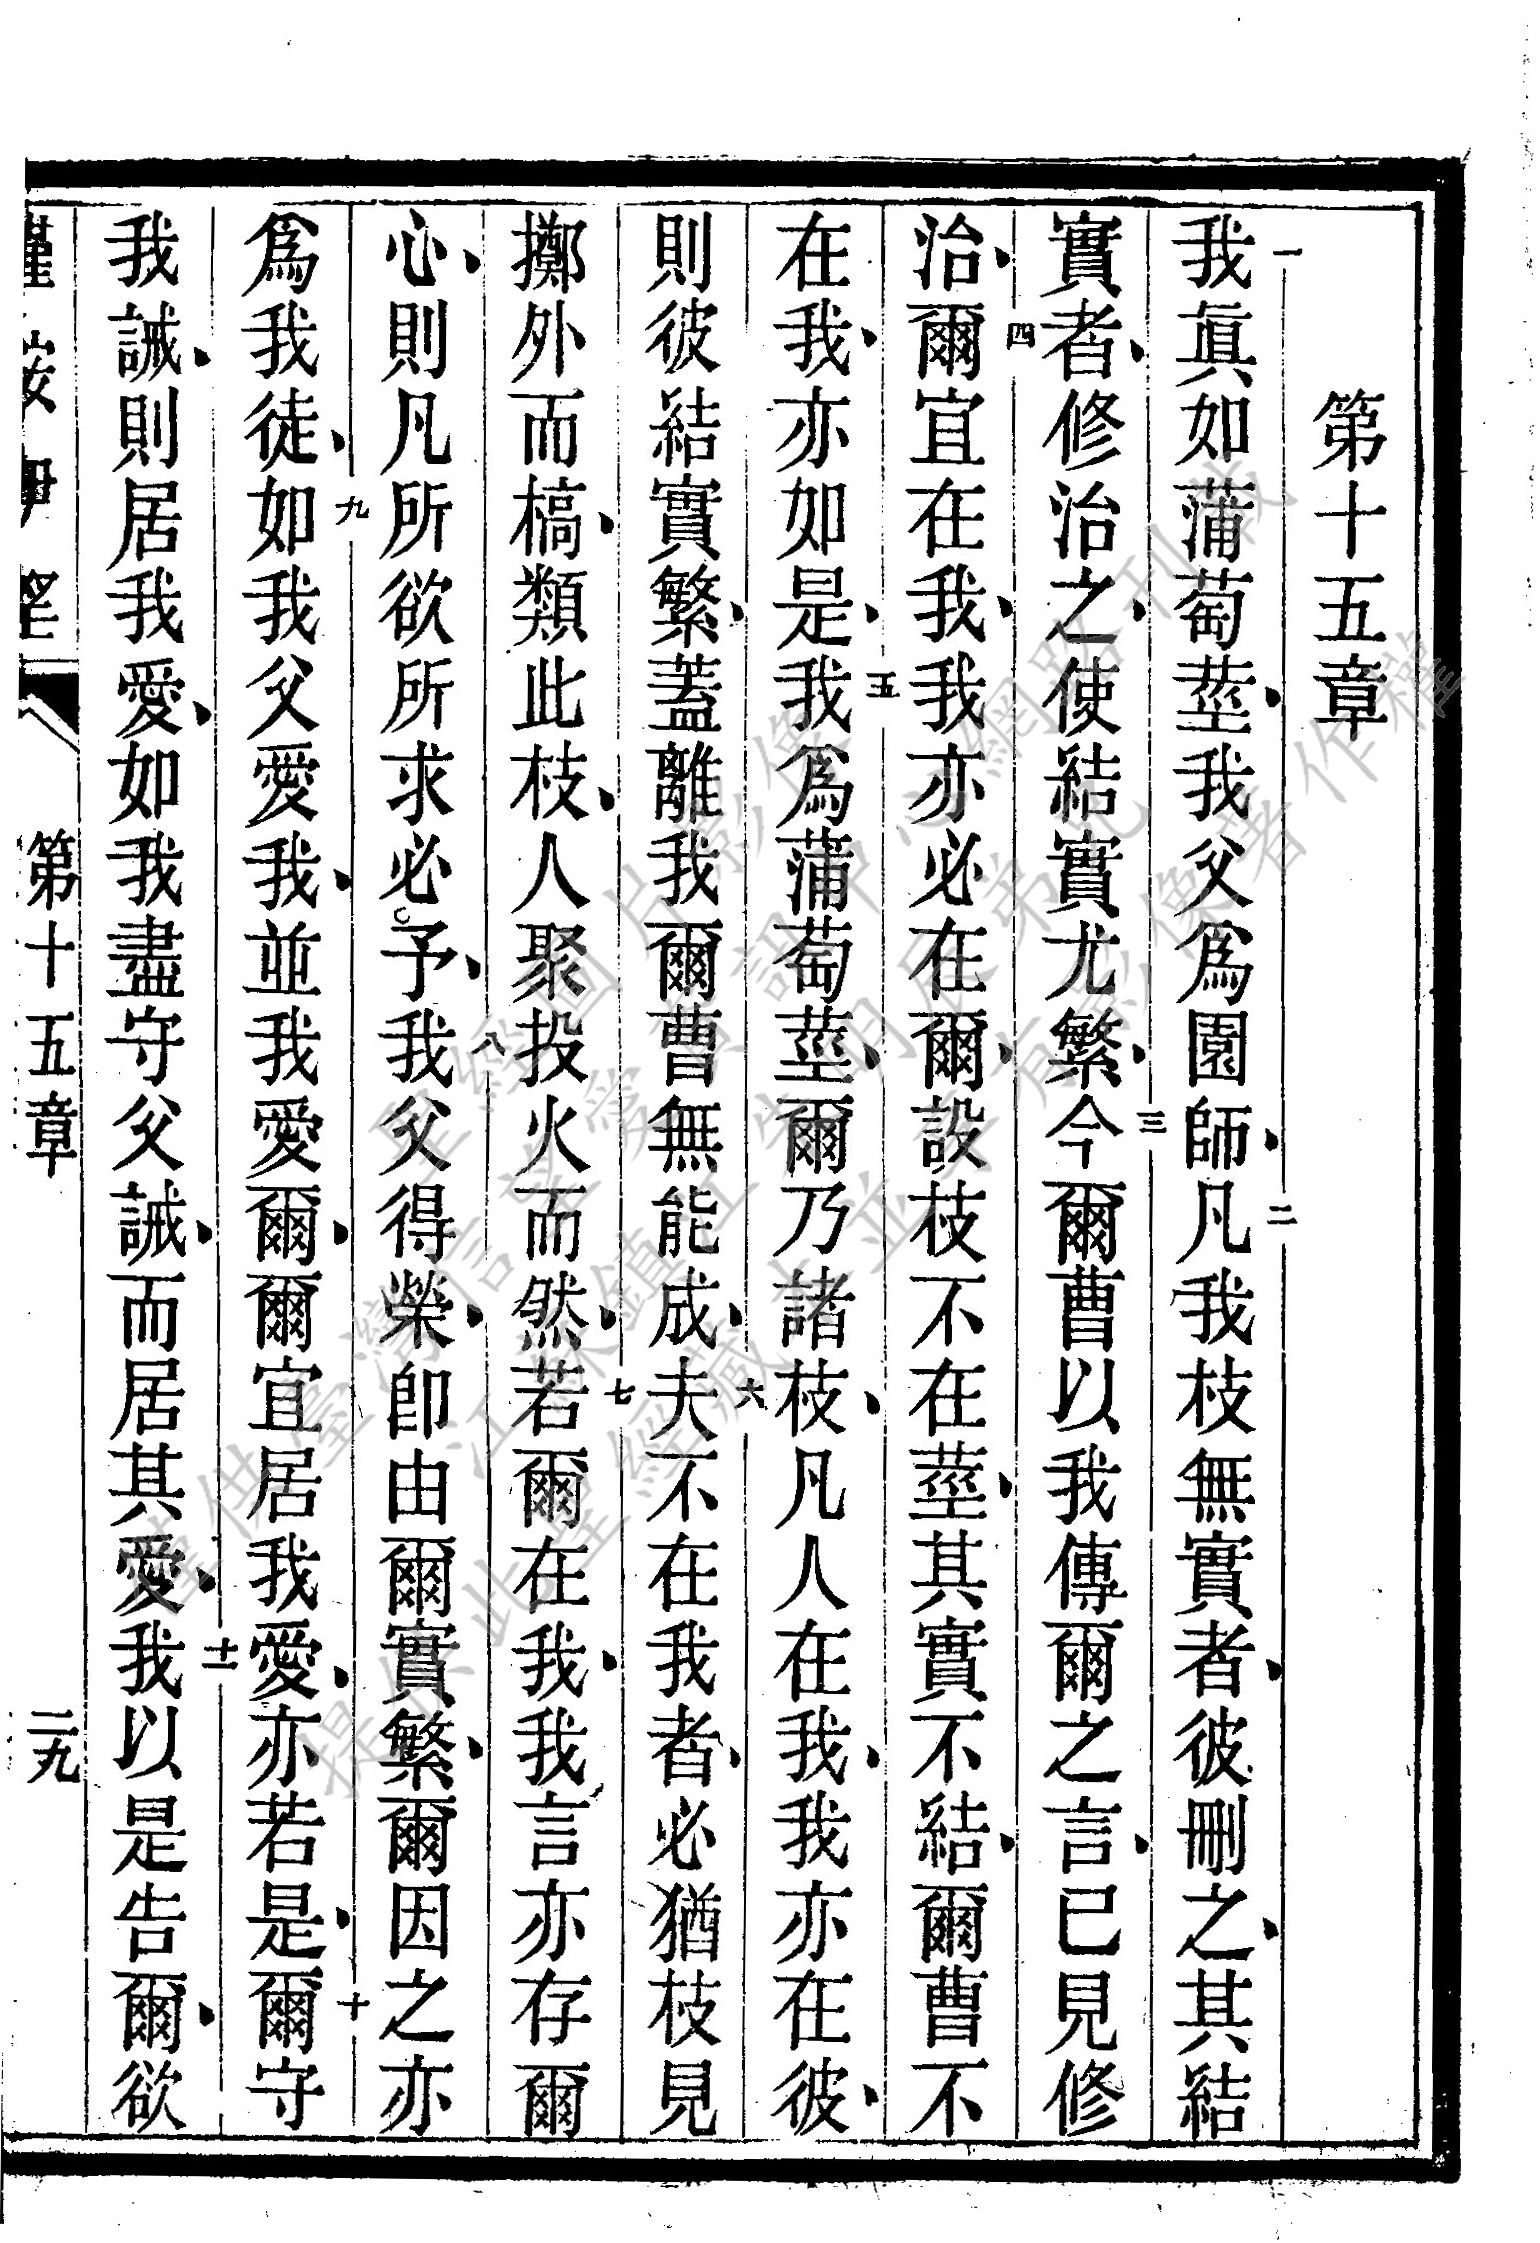 第十五章
一我眞如蒲萄莖、我父爲園師、二凡我枝無實者、彼刪之、其結
實者、修治之、使結實尤繁、三今爾曹以我傳爾之言、已見修
治、四爾宜在我、我亦必在爾、設枝不在莖、其實不結、爾曹不
在我、亦如是、五我爲蒲萄莖、爾乃諸枝、凡人在我、我亦在彼、
則彼結實繁、蓋離我爾曹無能成、六夫不在我者、必猶枝見
擲外而槁、類此枝、人聚投火而然、七若爾在我、我言亦存爾
心、則凡所欲所求必予、八我父得榮、卽由爾實繁、爾因之亦
爲我徒、九如我父愛我、並我愛爾、爾宜居我愛、亦若是、十爾守
我誡、則居我愛、如我盡守父誡、而居其愛、十一我以是告爾、欲
第十五章
二九